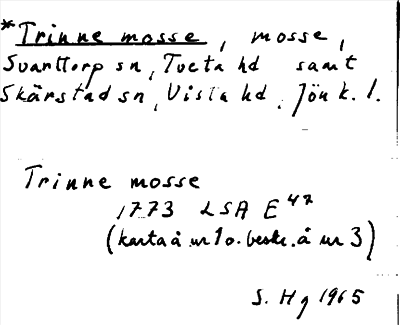 *Trinne mosse, mosse,
Svarttorp sn, Tveta hd samt
Skärstad sn, Vista hd, Jön k. l.
Trinne mosse
1773 LSA E⁴⁷
(karta å nr 1 o. beskr. å nr 3)
S. Hg 1965